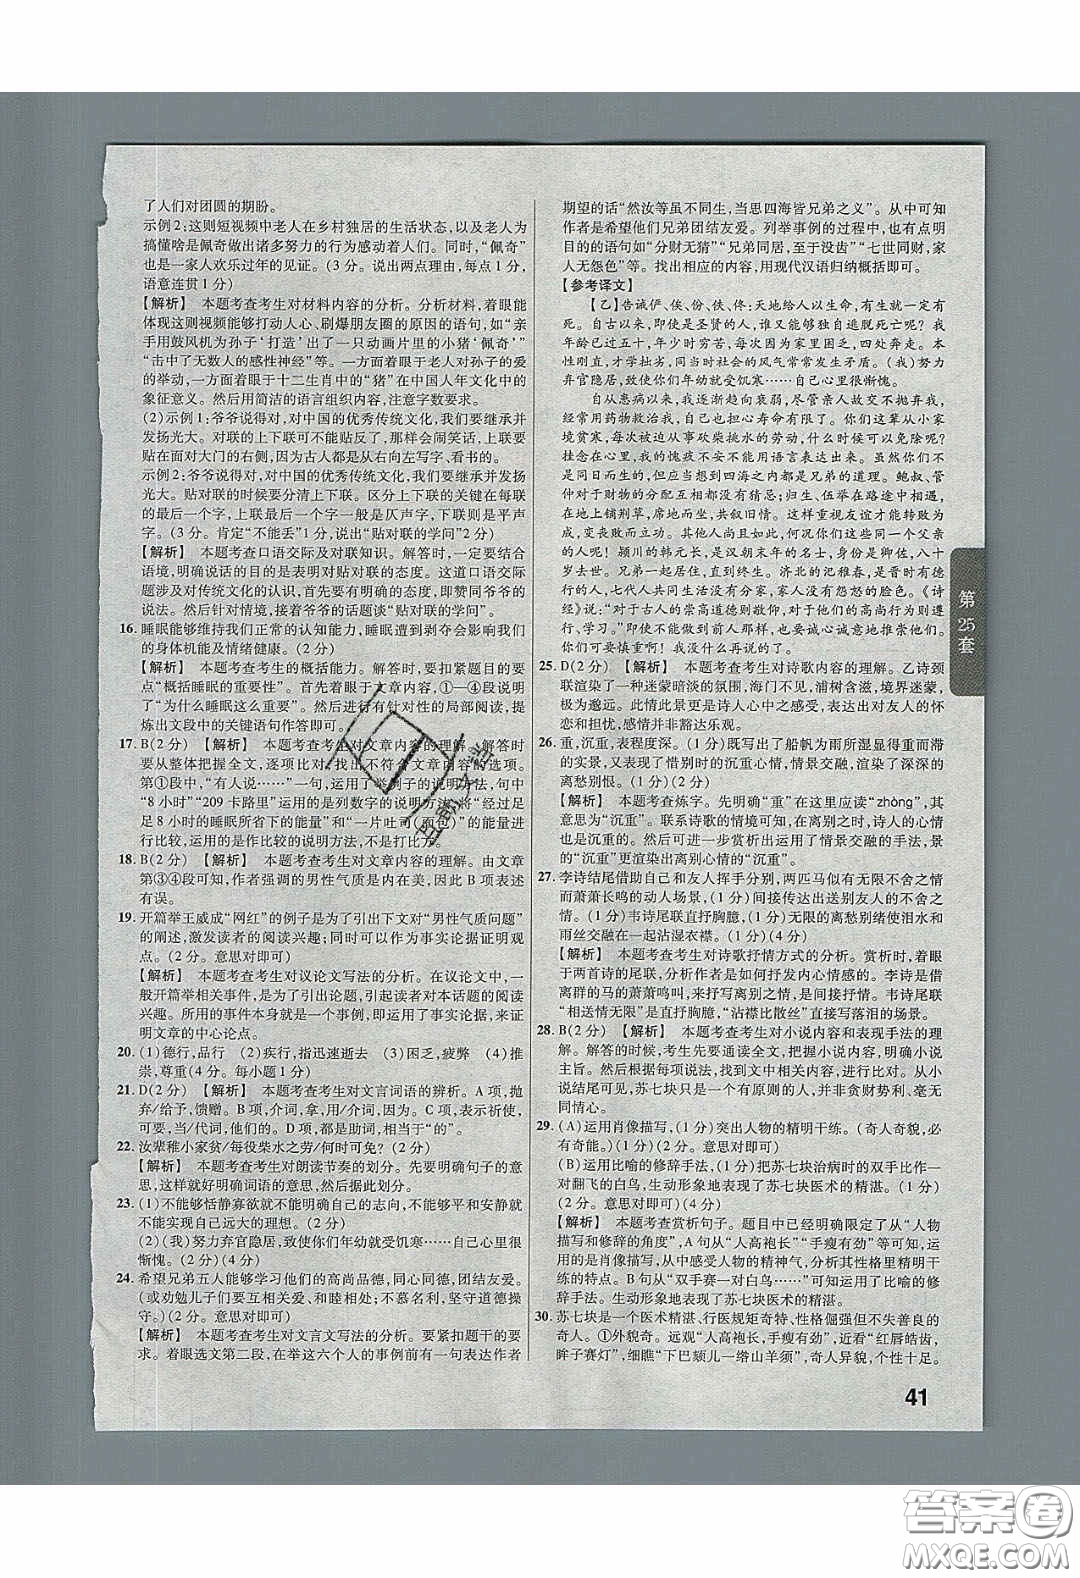 了人们对团圆的期盼。
示例2：这则短视频中老人在乡村独居的生活状态，以及老人为
搞懂啥是佩奇做出诸多努力的行为感动着人们。同时，“佩奇”
也是一家人欢乐过年的见证。(3分。说出两点理由，每点1分，
语意连贯1分)
【解析】 本题考查考生对材料内容的分析。分析材料，着眼能
体现这则视频能够打动人心、刷爆朋友圈的原因的语句，如“亲
手用鼓风机为孙子‘打造’出了一只动画片里的小猪‘佩奇’”
“击中了无数人的感性神经”等。一方面着眼于爷爷对孙子的爱
的举动，一方面着眼于十二生肖中的“猪”在中国人年文化中的
象征意义。然后用简洁的语言组织内容，注意字数要求。
(2)示例1：爷爷说得对，对中国的优秀传统文化，我们要继承并
发扬光大。对联的上下联可不能贴反了，那样会闹笑话，上联应
该贴在面对大门的右侧，因为古人都是从右向左写字、看书的。
示例2：爷爷说得对，对中国的优秀传统文化，我们要继承并发扬
光大。贴对联的时候要分清上下联。区分上下联的关键在每联
的最后一个字，上联最后一个字一般是仄声字，下联则是平声
字。(3分。肯定“不能丢”1分，说出“贴对联的学问”2分)
【解析】 本题考查口语交际及对联知识。解答时，一定要结合
语境，明确说话的目的是表明对贴对联的态度。这道口语交际
题涉及对传统文化的认识，首先要有明确的态度，即赞同爷爷的
说法。然后针对情境，接着爷爷的话题谈“贴对联的学问”。
16. 睡眠能够维持我们正常的认知能力，睡眠遭到剥夺会影响我们
的身体机能及情绪健康。(2分)
【解析】 本题考查考生的概括能力。解答时，要扣紧题目的要
点“概括睡眠的重要性”。首先着眼于文章内容，①—④段说明
了“为什么睡眠这么重要”。然后进行有针对性的局部阅读，提
炼出文段中的关键语句作答即可。
17. B(2分) 【解析】 本题考查考生对文章内容的理解。解答时
要从整体把握全文，逐项比对，找出不符合文章内容的选项。
第①段中，“有人说……”一句，运用了举例子的说明方法，句中
“8小时”“209卡路里”运用的是列数字的说明方法，将“经过足
足8小时的睡眠所省下的能量”和“一片吐司(面包)”的能量进
行比较，运用的是作比较的说明方法，不是打比方。
18. B(2分) 【解析】 本题考查考生对文章内容的理解。由文章
第③④段可知，作者强调的男性气质是内在美，因此B项表述
有误。
19. 开篇举王威成“网红”的例子是为了引出下文对“男性气质问题”
的阐述，激发读者的阅读兴趣；同时可以作为事实论据证明观
点。(2分。意思对即可)
【解析】 本题考查考生对议论文写法的分析。在议论文中，一
般开篇举相关事件，是为了引出论题，引起读者对本话题的阅读
兴趣。所用的事件本身就是一个事例，即运用事实论据，来证
明文章的中心论点。
20. (1)德行，品行 (2)疾行，指迅速逝去 (3)困乏，疲弊 (4)推
崇，尊重(4分。每小题1分)
21. D(2分) 【解析】 本题考查考生对文言词语的辨析。A项，抛
弃/给予，馈赠。B项，介词，拿，用/介词，因为。C项，表示祈使，
可要，当/代词，他们的。D项，都是助词，相当于“的”。
22. 汝辈稚小家贫/每役柴水之劳/何时可免？(2分)
【解析】 本题考查考生对朗读节奏的划分。先要明确句子的意
思，这样就好明确词语的意思，然后据此划分。
23. (1)不能够恬静寡欲就不能明确自己的志向，不能够平和安静就
不能实现自己远大的理想。(2分)
(2)(我)努力弃官隐居，致使你们年幼就受饥寒……自己心里很
惭愧。(2分)(4分)
24. 希望兄弟五人能够学习他们的高尚品德，同心同德，团结友爱。
(或劝勉儿子们要互相包容、和睦相处；不慕名利，坚守道德操
守。)(2分。意思对即可)
【解析】 本题考查考生对文言文写法的分析。要紧扣题干的要
求。着眼选文第二段，在举这六个人的事例前有一句表达作者
期望的话“然汝等虽不同生，当思四海皆兄弟之义”。从中可知
作者是希望他们兄弟团结友爱。列举事例的过程中，也有点明
目的的语句如“分财无猜”“兄弟同居，至于没齿”“七世同财，家
人无怨色”等。找出相应的内容，用现代汉语归纳概括即可。
【参考译文】
【乙】告诫俨、俟、份、佚、佟：天地给人以生命，有生就一定有
死。自古以来，即使是圣贤的人，谁又能够独自逃脱死亡呢？我
年龄已过五十，年少时穷苦，每每因为家里困乏，四处奔走。本
性刚直，才学拙劣，同当时社会的风气常常发生矛盾。(我)努力
弃官隐居，致使你们年幼就受饥寒……自己心里很惭愧。
自从患病以来，我逐渐趋向衰弱，尽管亲人故交不抛弃我，
经常用药物救治我，自己也担心寿命有限了。你们年纪小家
境贫寒，每次被迫从事砍柴挑水的劳动，什么时候可以免除呢？
挂念在心里，我的愧疚不安不能用语言表达出来。你们虽然不
是同日而生的，但应当想到四海之内皆是兄弟的道理。鲍叔、管
仲对于财物的分配互相都没有猜忌；归生、伍举在路途中相遇，
在地上铺荆草，席地而坐，共叙旧情。这样重视友谊才能转败为
成，变丧败而立功。他人尚且如此，何况你们是同一个父亲的兄
弟啊！颍川的韩元长，是汉朝末年的名士，身份是卿佐，八十
岁去世。兄弟一起居住，直到终生。济北的氾稚春，是晋时有德
行的人，七代人共同生活没有分家，家人没有怨怒的脸色。《诗
经》说：“对于古人的崇高道德则敬仰，对于他们的高尚行为则遵
行、学习。”即使不能达到那样，也要诚心诚意地推崇他们的高尚
行为。你们可要慎重啊！我没什么再说的了。
25. D(2分) 【解析】 本题考查考生对诗歌内容的理解。乙诗颈
联渲染了一种迷蒙暗淡的氛围，海门不见，浦树含滋，境界迷蒙，
极为邈远。此情此景更是诗人心中之感受，蕴含出对友人的怀
恋和担忧，感情并非豁达乐观。
26. 重，沉重，表程度深。(1分)既写出了船帆为雨所湿显得重而滞
的实景，又表现了惜别时的沉重心情，情景交融，渲染了深深的
离愁别恨。(1分)(2分)
【解析】 本题考查炼字。先明确“重”在这里应读“zhòng”，其
意为“沉重”。联系诗歌的情境可知，在离别之时，诗人的心情也
应是沉重的。然后可以进一步赏析出运用了情景交融的手法，景
的“沉重”更渲染出离别心情的“沉重”。
27. 李诗结尾借助自己和友人挥手分别，两匹马似有无限不舍之情
而萧萧长鸣的动人场景，(1分)间接传达出诗人依依不舍的情
意。(1分)韦诗尾联直抒胸臆，(1分)无限的离愁别绪使泪水和
雨丝交融在一起沾湿衣襟。(1分)(4分)
【解析】 本题考查考生对诗歌抒情方式的分析。赏析时，着眼
于两首诗的尾联，分析作者是如何抒发内心情感的。李诗是借
离群的马的萧萧鸣叫，来抒写离别之情，是间接抒情。韦诗尾联
“相送情无限”是直抒胸臆，“沾襟比散丝”直接写落泪的场景。
28. B(2分) 【解析】 本题考查考生对小说内容和表现手法的理
解。解答的时候，考生先要通读全文，把握小说内容，明确小说
主旨。然后根据每个选项，找出文中相关内容，进行比对。从小
说结尾可见，苏七块只是一个有原则的人，并非贪财势利、毫无
同情心。
29. (A)运用肖像描写，(1分)突出人物的精明干练。(奇人奇貌，必
有奇能。)(1分)(2分。意思对即可)
(B)运用比喻的修辞手法，(1分)把苏七块治病时的双手比作一
对翻飞的白鸟，生动形象地表现了苏七块医术的精湛。(1分)
(2分。意思对即可)(4分)
【解析】 本题考查赏析句子。题目中已经明确限定了从“人物
描写和修辞的角度”，A句从“人高袍长”“手瘦有劲”等可看出，
运用了肖像描写，从中感受人物的精神气，分析人物性格里精明干
练的特点。B句从“双手赛一对白鸟……”运用了比喻的修
辞手法。生动形象地表现了苏七块医术的精湛。
30. 苏七块是一个医术精湛、行医规矩奇特、性格倔强但不失善良的
奇人。①外貌奇。远观“人高袍长，手瘦有劲”，近看“红唇皓齿，
眸子赛灯”，细瞧“下巴颏儿一绺山羊须”，奇人异貌，个性十足。
第25套
41
答案卷
MXQE.COM